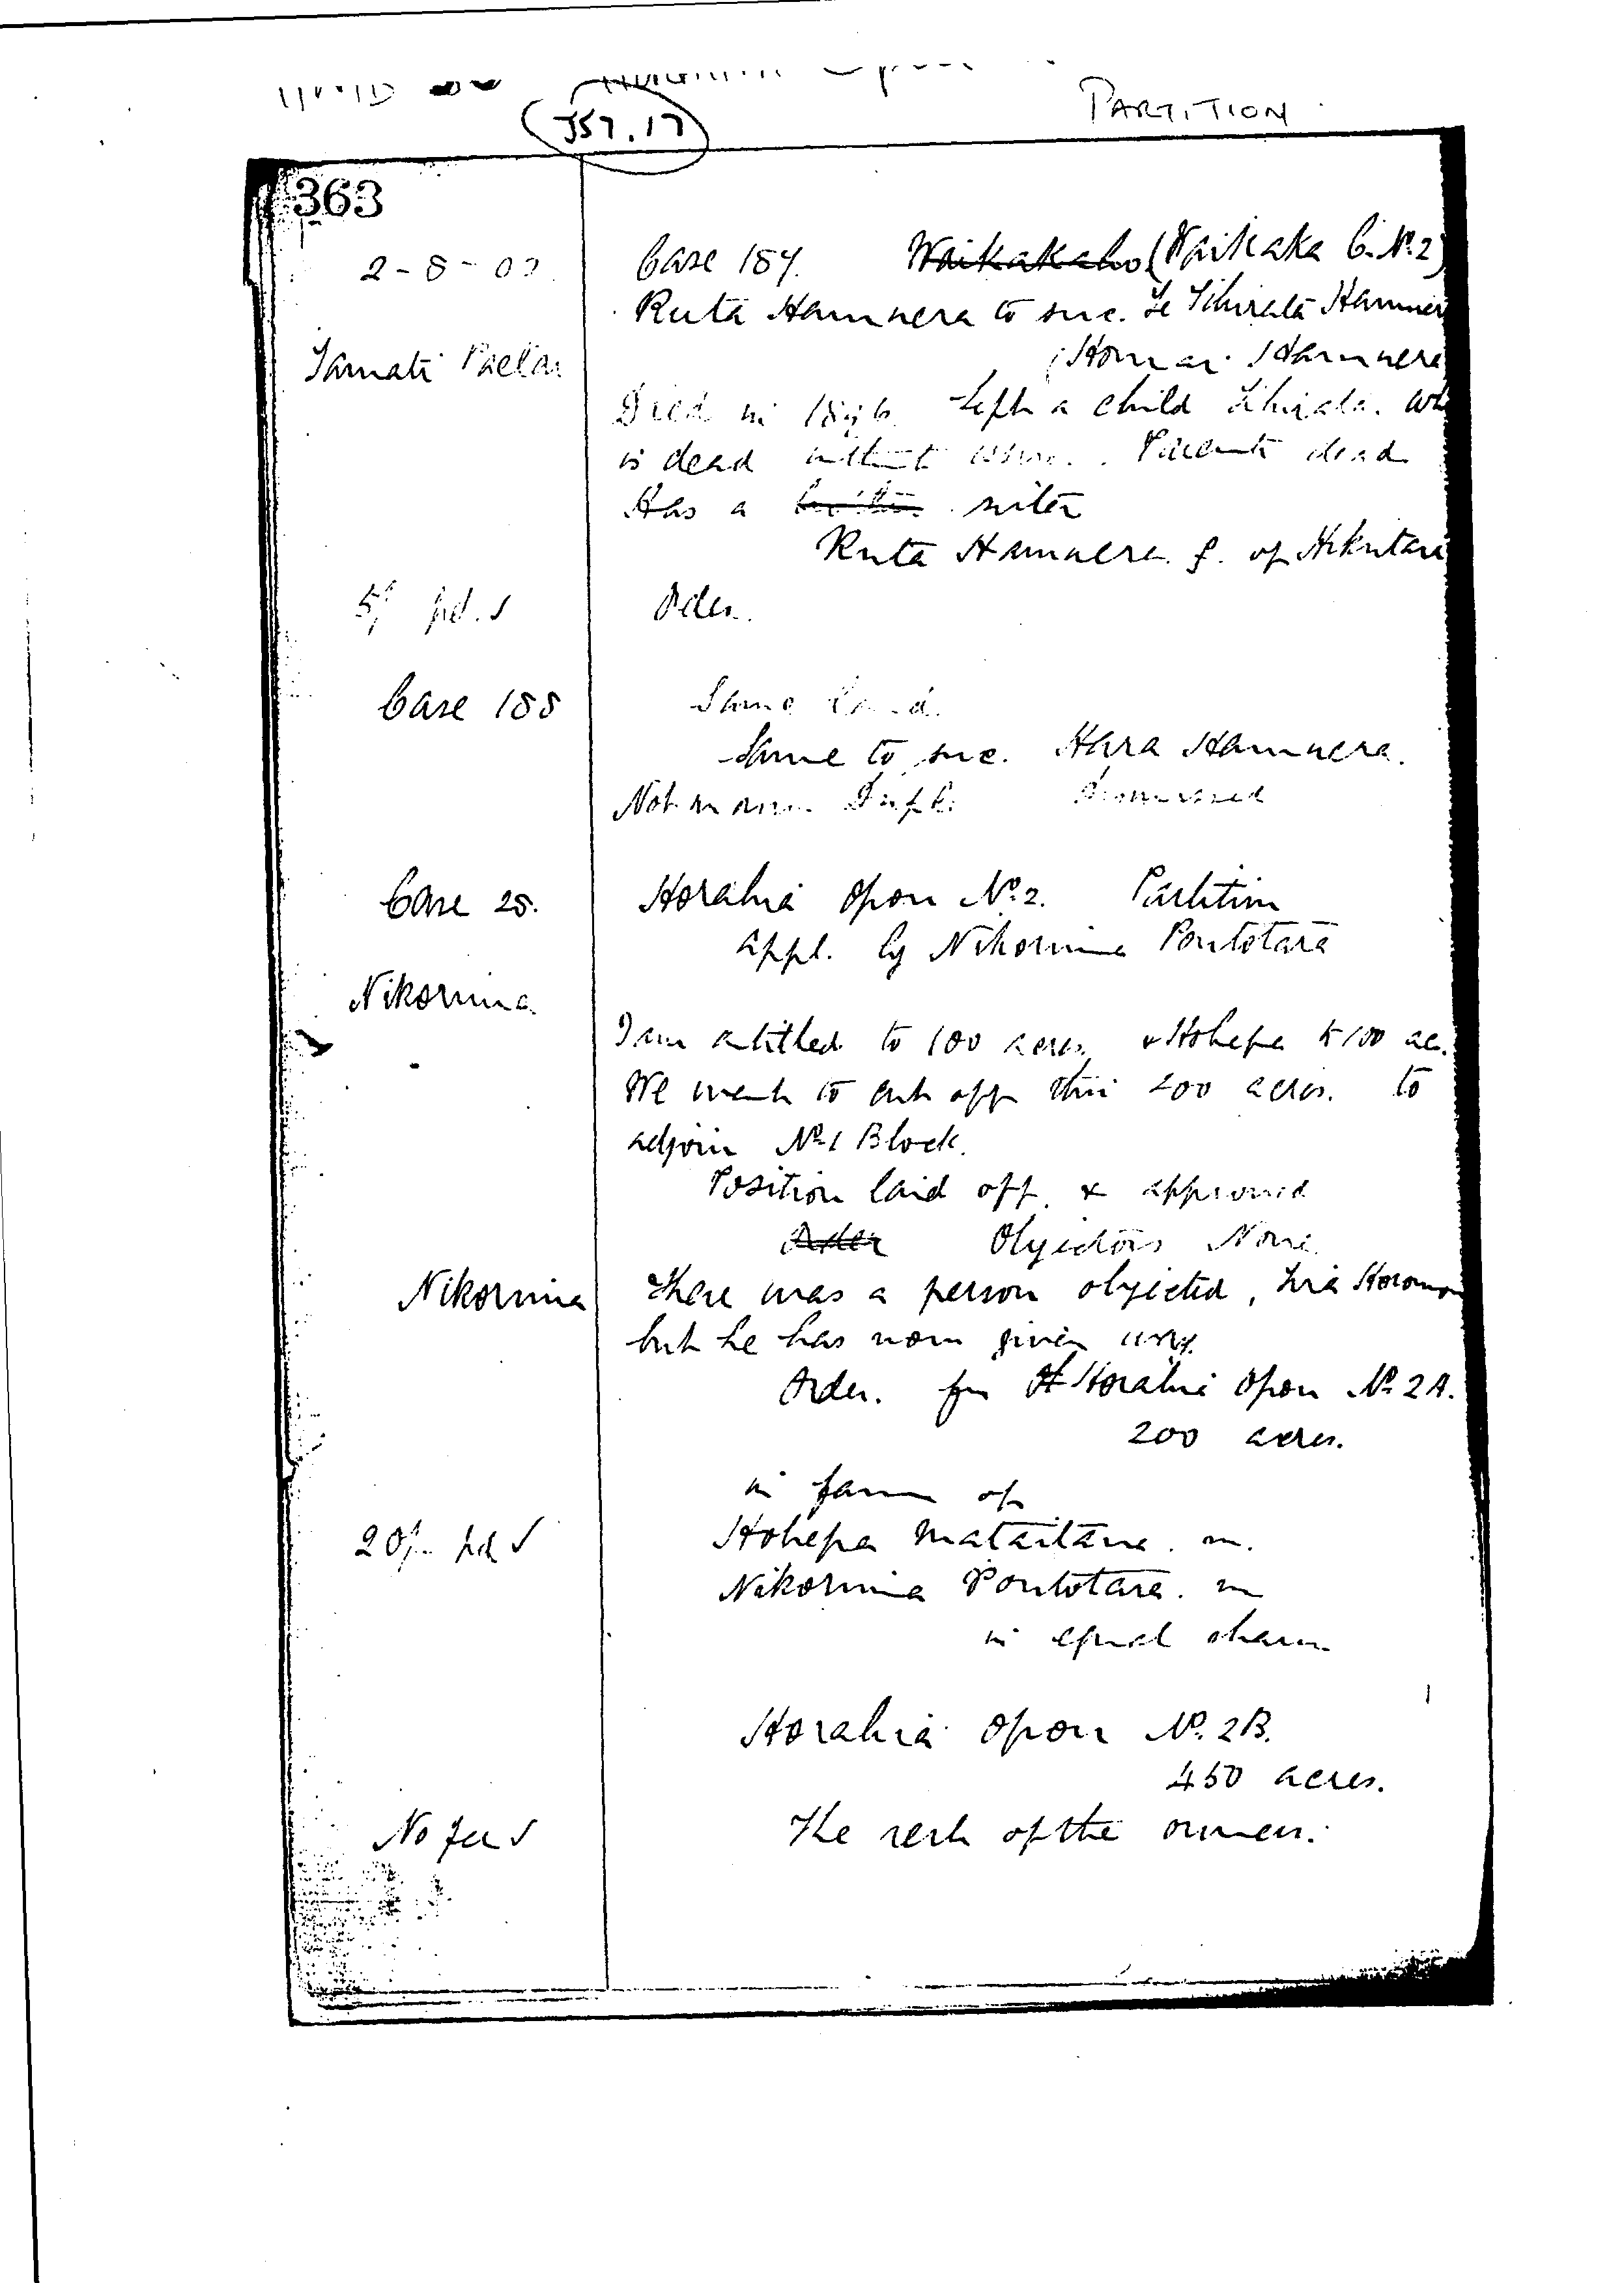 PARTITION
J57.17
363
2-8-0
Case 187. Waikakaho (Waikaka C. No. 2)
Ruta Hamuera to suc. Te Tihirata Hamuer
Hamuera
Tamati Paetai
Died in Left a child Tihirata. Wh
is dead without issue. Parents dead
Has a sister
Ruta Hamuera f. of Hikutai
5/ pd. √
Order.
Case 188
Same Land.
Same to suc. Hara Hamuera.
Not in Dismissed
Case 25.
Horahia Opou No. 2. Partition
appl. by Nikorima Poutotara
Nikorima
I am entitled to 100 acres, & Hohepa to 100 ac.
We want to cut off this 200 acres. to
adjoin No. 1 Block.
Position laid off & approved
Order Objectors None
Nikorima
There was a person objected, Horomon
but he has now given way.
Order. for Horahia Opou No. 2A.
200 acres.
in favour of
20/- pd √
Hohepa Mataitaua. m.
Nikorima Poutotara. m
in equal shares
Horahia Opou No. 2B.
450 acres.
No fee √
The rest of the owners.